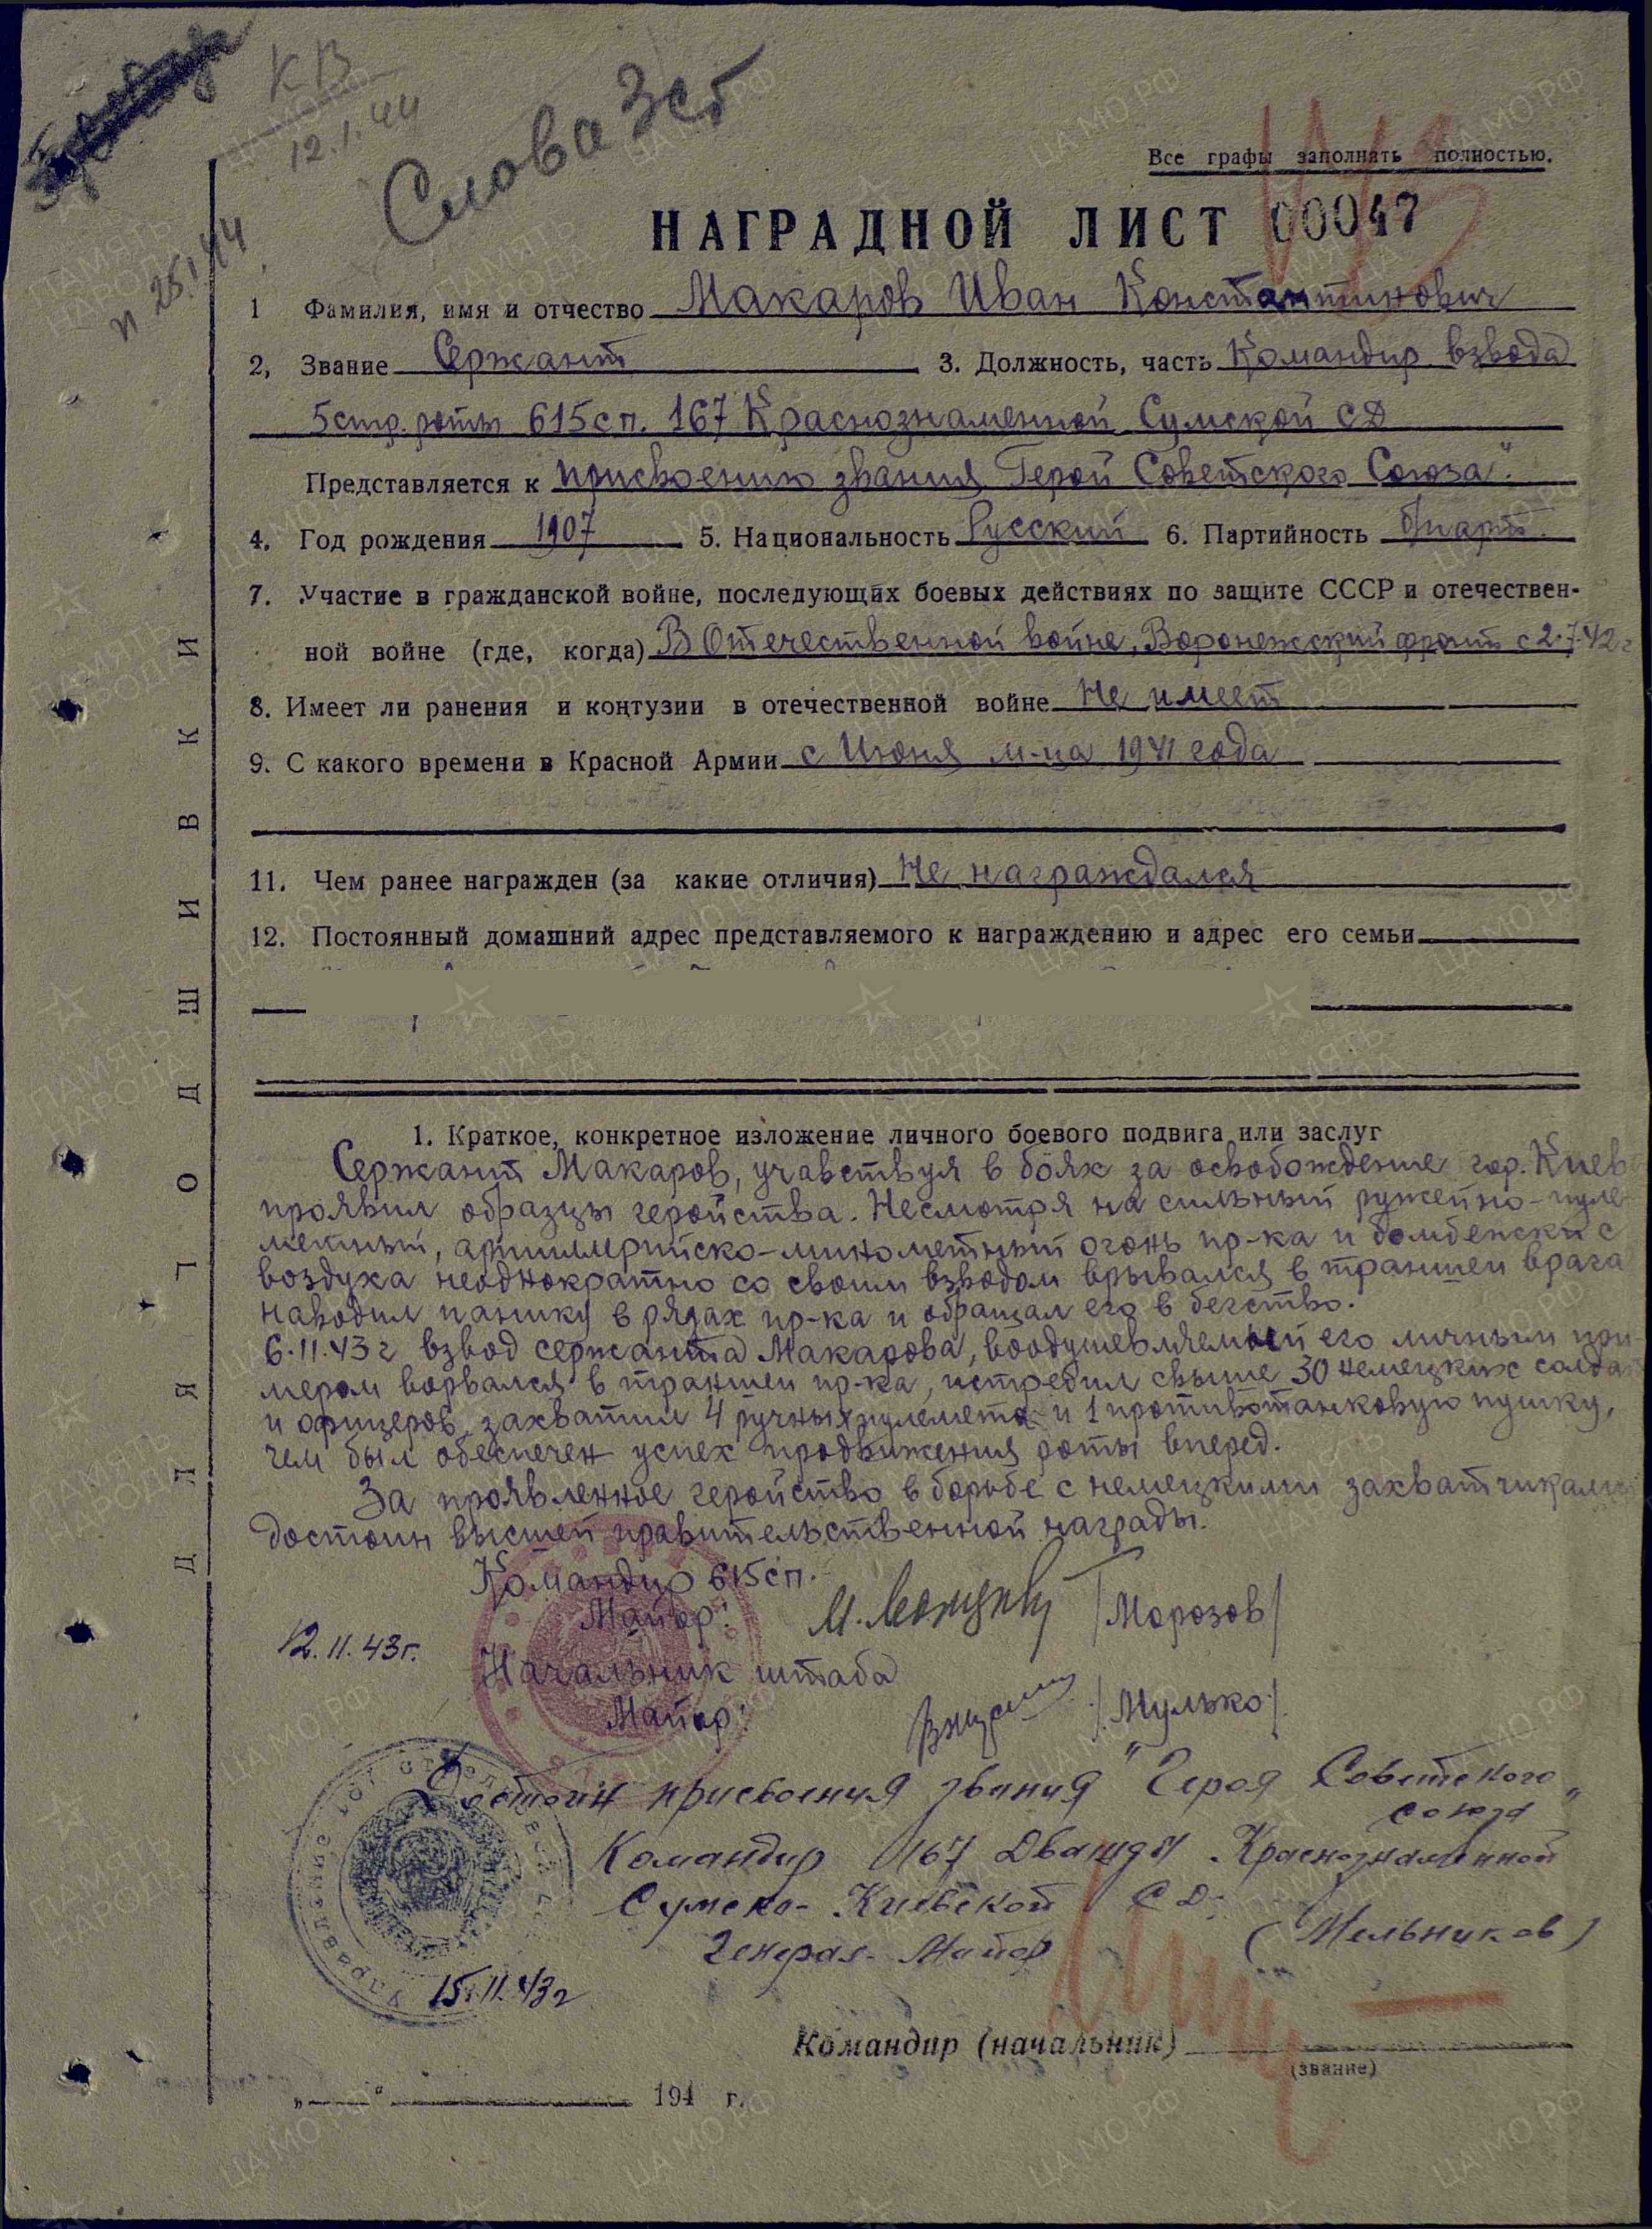 КВ
12.1.44
Слова 3 ст
25.1.44
Все графы заполнять полностью.
НАГРАДНОЙ ЛИСТ 00047
1 Фамилия, имя и отчество Макаров Иван Константинович
2, Звание Сержант 3. Должность, часть Командир взвода
5 стр. роты 615 сп. 167 Краснознаменной Сумской СД
Представляется к присвоению звания „Герой Советского Союза".
4. Год рождения 1907 5. Национальность Русский 6. Партийность б/парт.
7. Участие в гражданской войне, последующих боевых действиях по защите СССР и отечествен-
ной войне (где, когда) В Отечественной войне, Воронежский фронт с 2.7.42 г
8. Имеет ли ранения и контузии в отечественной войне Не имеет
9. С какого времени в Красной Армии с Июня м-ца 1941 года
11. Чем ранее награжден (за какие отличия) Не награждался
12. Постоянный домашний адрес представляемого к награждению и адрес его семьи
1. Краткое, конкретное изложение личного боевого подвига или заслуг
Сержант Макаров, учавствуя в боях за освобождение гор. Киев
проявил образцы геройства. Несмотря на сильный ружейно-пуле
метный, артиллерийско-минометный огонь пр-ка и бомбежки с
воздуха неоднократно со своим взводом врывался в траншеи врага
наводил панику в рядах пр-ка и обращал его в бегство.
6.11.43 г взвод сержанта Макарова, воодушевляемый его личным при-
мером ворвался в траншеи пр-ка, истребил свыше 30 немецких солдат
и офицеров, захватил 4 ручных пулемета и 1 противотанковую пушку,
чем был обеспечен успех продвижения роты вперед.
За проявленное геройство в борьбе с немецкими захватчиками
достоин высшей правительственной награды.
Командир 615 сп.
Майор: /Морозов/
12.11.43г.
Начальник штаба
Майор: /Мулько/
Достоин присвоения звания "Героя Советского
Союза"
Командир 167 Дважды Краснознаменной
Сумско-Киевской СД
Генерал-Майор (Мельников)
15.11.43 г
Командир (начальник)
(звание)
„ “ 194 г.
ДЛЯ ПОДШИВКИ